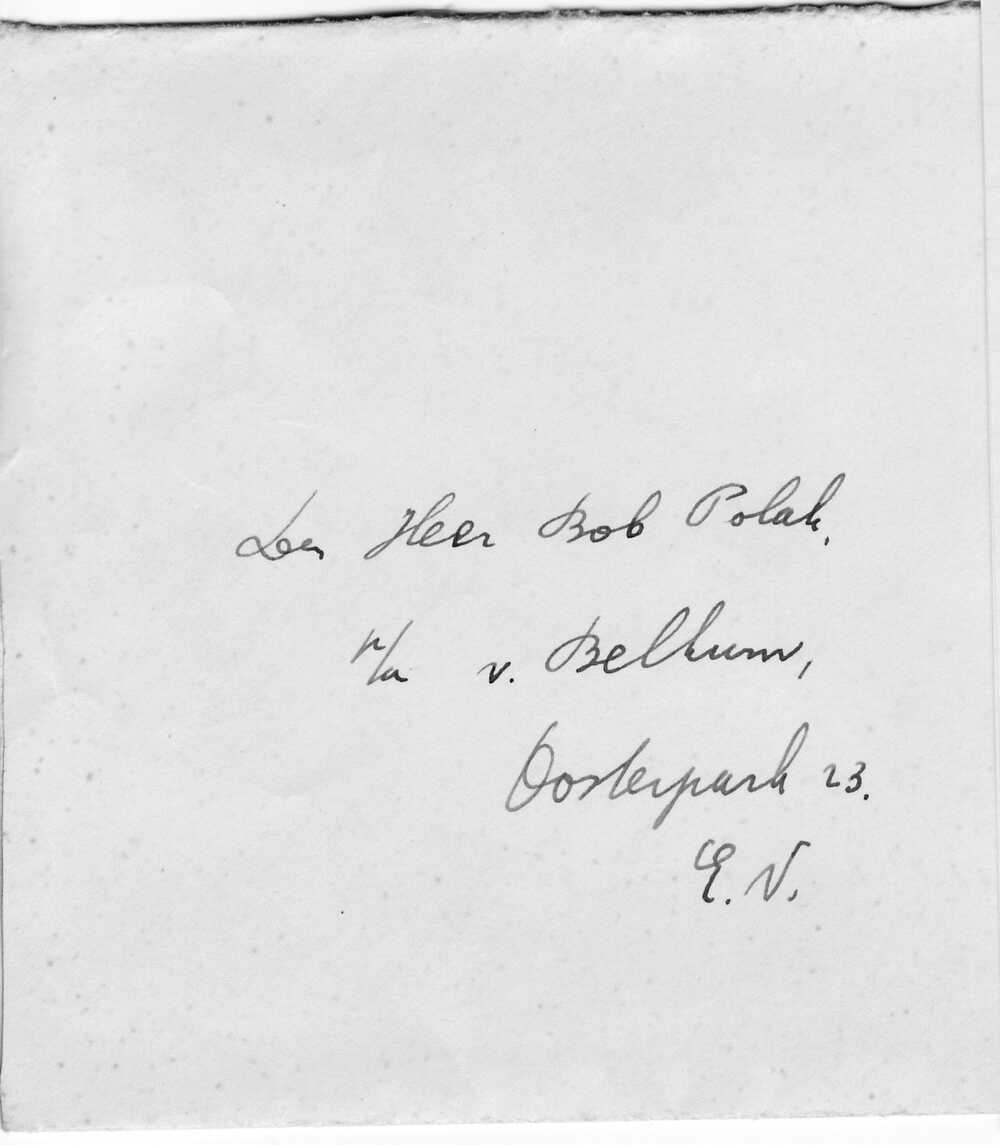 Den Heer Bob Polak,
p/a v. Belkum,
Oosterpark 23.
E. V.